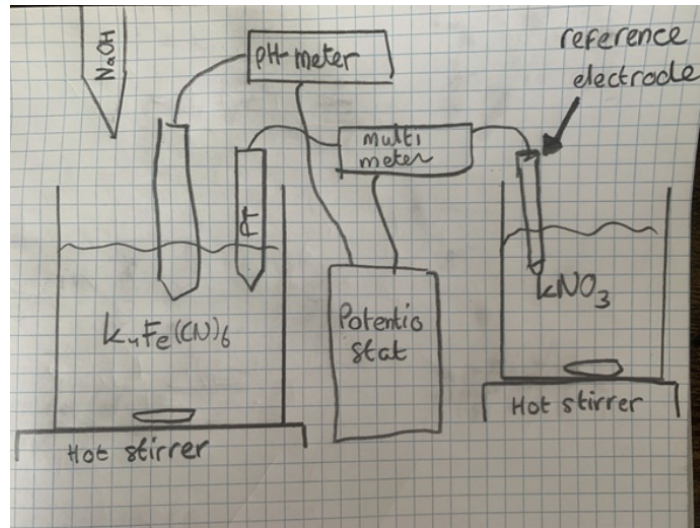 NaOH
pH-meter
reference
electrode
multi
meter
Pt
K4Fe(CN)6
KNO3
Potentio
stat
Hot stirrer
Hot stirrer